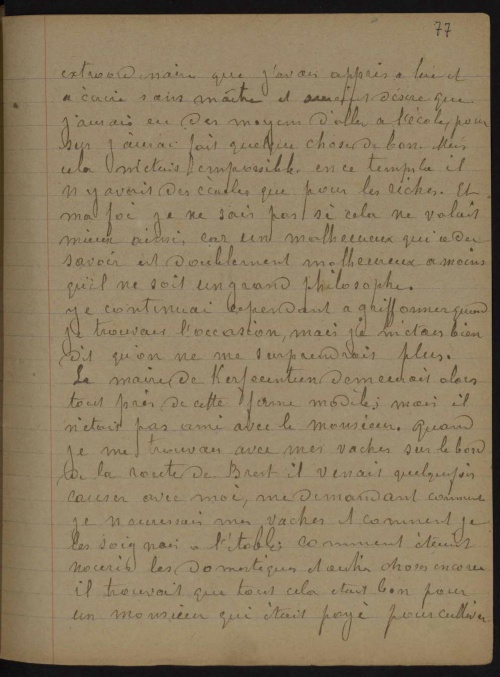 77
extraordinaire que j'avais appris a lire et
a écrire sans maître et disire que
j'amais eu des moyens d'aller a l'école, pour
sur j'aurai fait quelque chose de bon. Mais
cela m'etait impossible en ce temps la il
n'y avait des ecoles que pour les riches. Et
ma foi je ne sais pas si cela ne valait
mieux ainsi, car un malheureux qui a du
savoir est doublement malheureux a moins
qu'il ne soit un grand philosophe.
Je continuai cependant a griffonner quand
je trouvais l'occasion, mais je m'etais bien
dit qu'on ne me surprendrais plus.
Le maire de Kerfeunteun demeurais alors
tout près de cette ferme modèle; mais il
n'etait pas ami avec le monsieur. Quand
je me trouvais avec mes vaches sur le bord
de la route de Brest il venait quelquefois
causer avec moi, me demandant comment
je nourrissais mes vaches et comment je
les soignais a l'étable; comment étaient
nouris les domestiques et autres choses encore
il trouvait que tout cela etait bon pour
un monsieur qui était payé pour cultiver